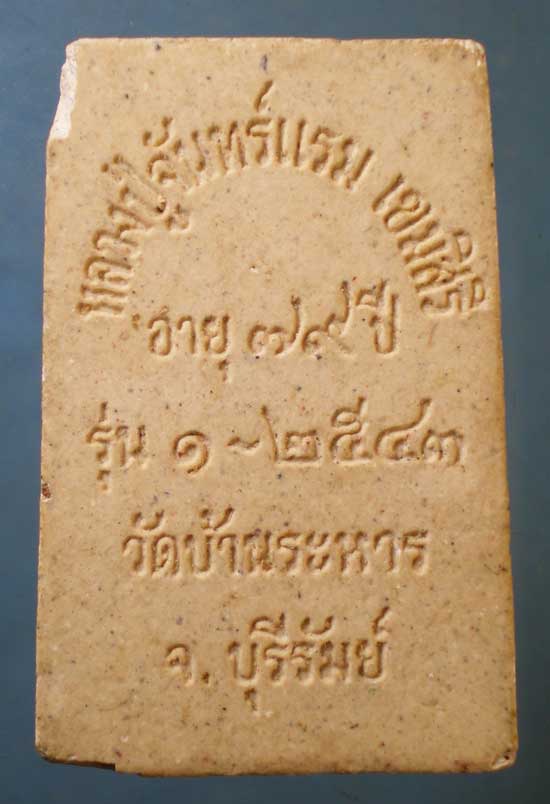 หลวงปู่จันทร์แรม เขมสิริ
อายุ ๗๙ ปี
รุ่น ๑ ~ ๒๕๔๓
วัดบ้านระหาร
จ. บุรีรัมย์